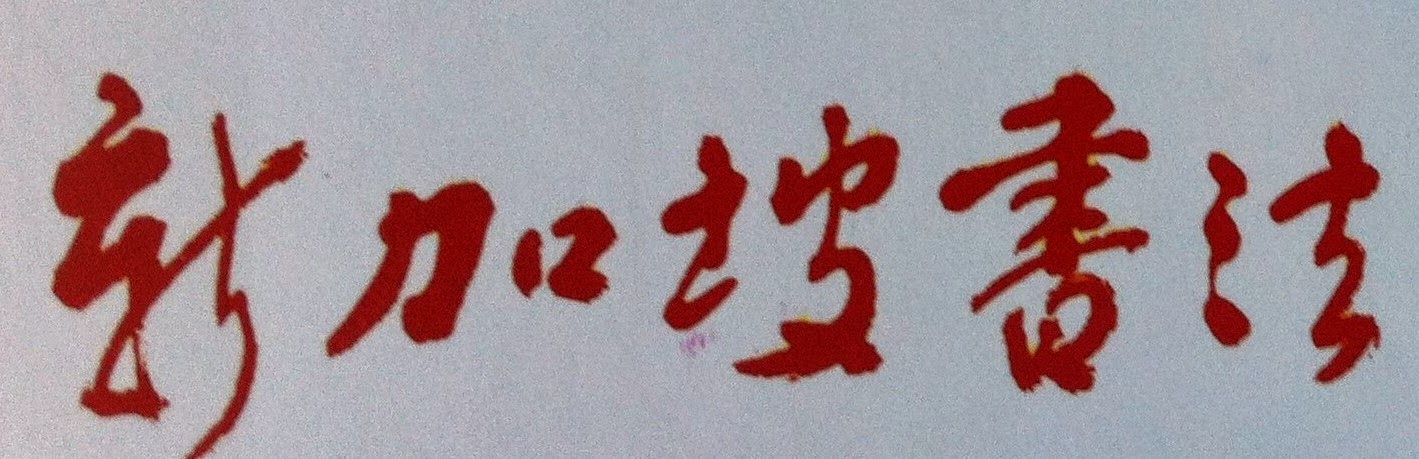 新加坡書法